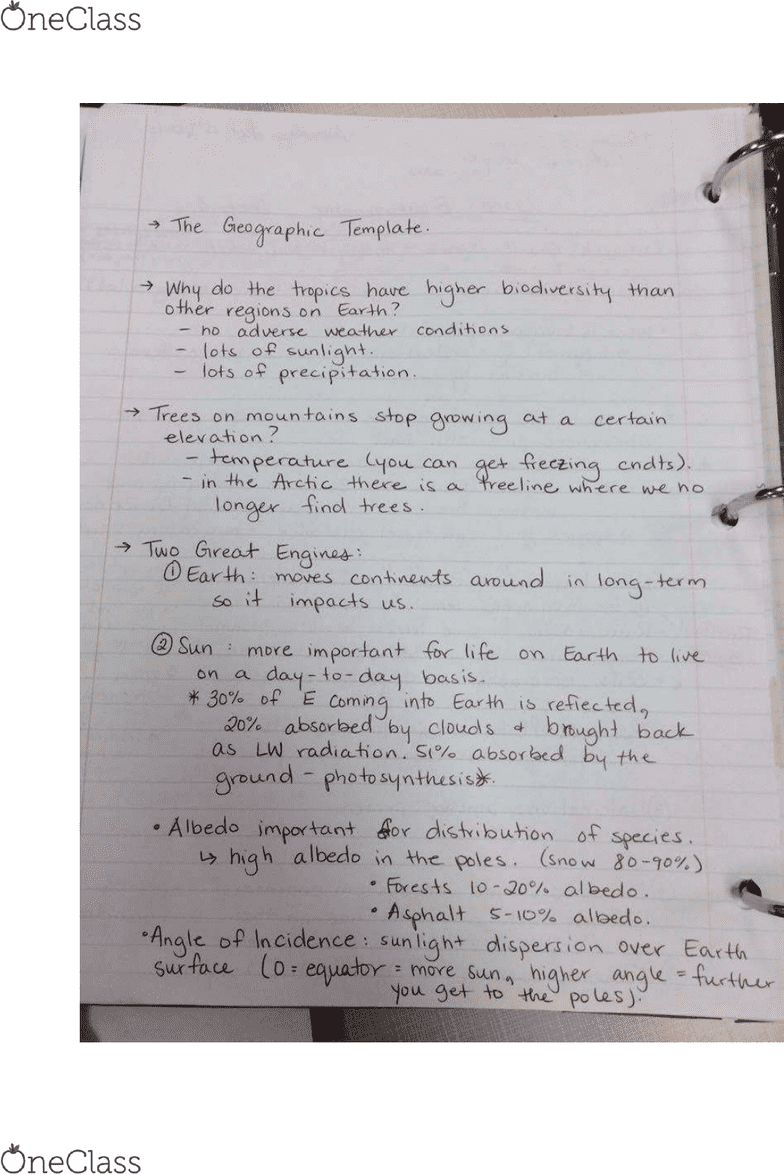 OneClass
→ The Geographic Template.
→ Why do the tropics have higher biodiversity than
other regions on Earth?
- no adverse weather conditions
- lots of sunlight.
- lots of precipitation.
→ Trees on mountains stop growing at a certain
elevation?
- temperature (you can get freezing cndts).
- in the Arctic there is a treeline where we no
longer find trees.
→ Two Great Engines:
① Earth: moves continents around in long-term
so it impacts us.
② Sun: more important for life on Earth to live
on a day-to-day basis.
* 30% of E coming into Earth is reflected,
20% absorbed by clouds & brought back
as LW radiation. 51% absorbed by the
ground - photosynthesis*.
• Albedo important for distribution of species.
↳ high albedo in the poles. (snow 80-90%)
• Forests 10-20% albedo.
• Asphalt 5-10% albedo.
• Angle of Incidence: sunlight dispersion over Earth
surface (0 = equator = more sun, higher angle = further
you get to the poles).
OneClass